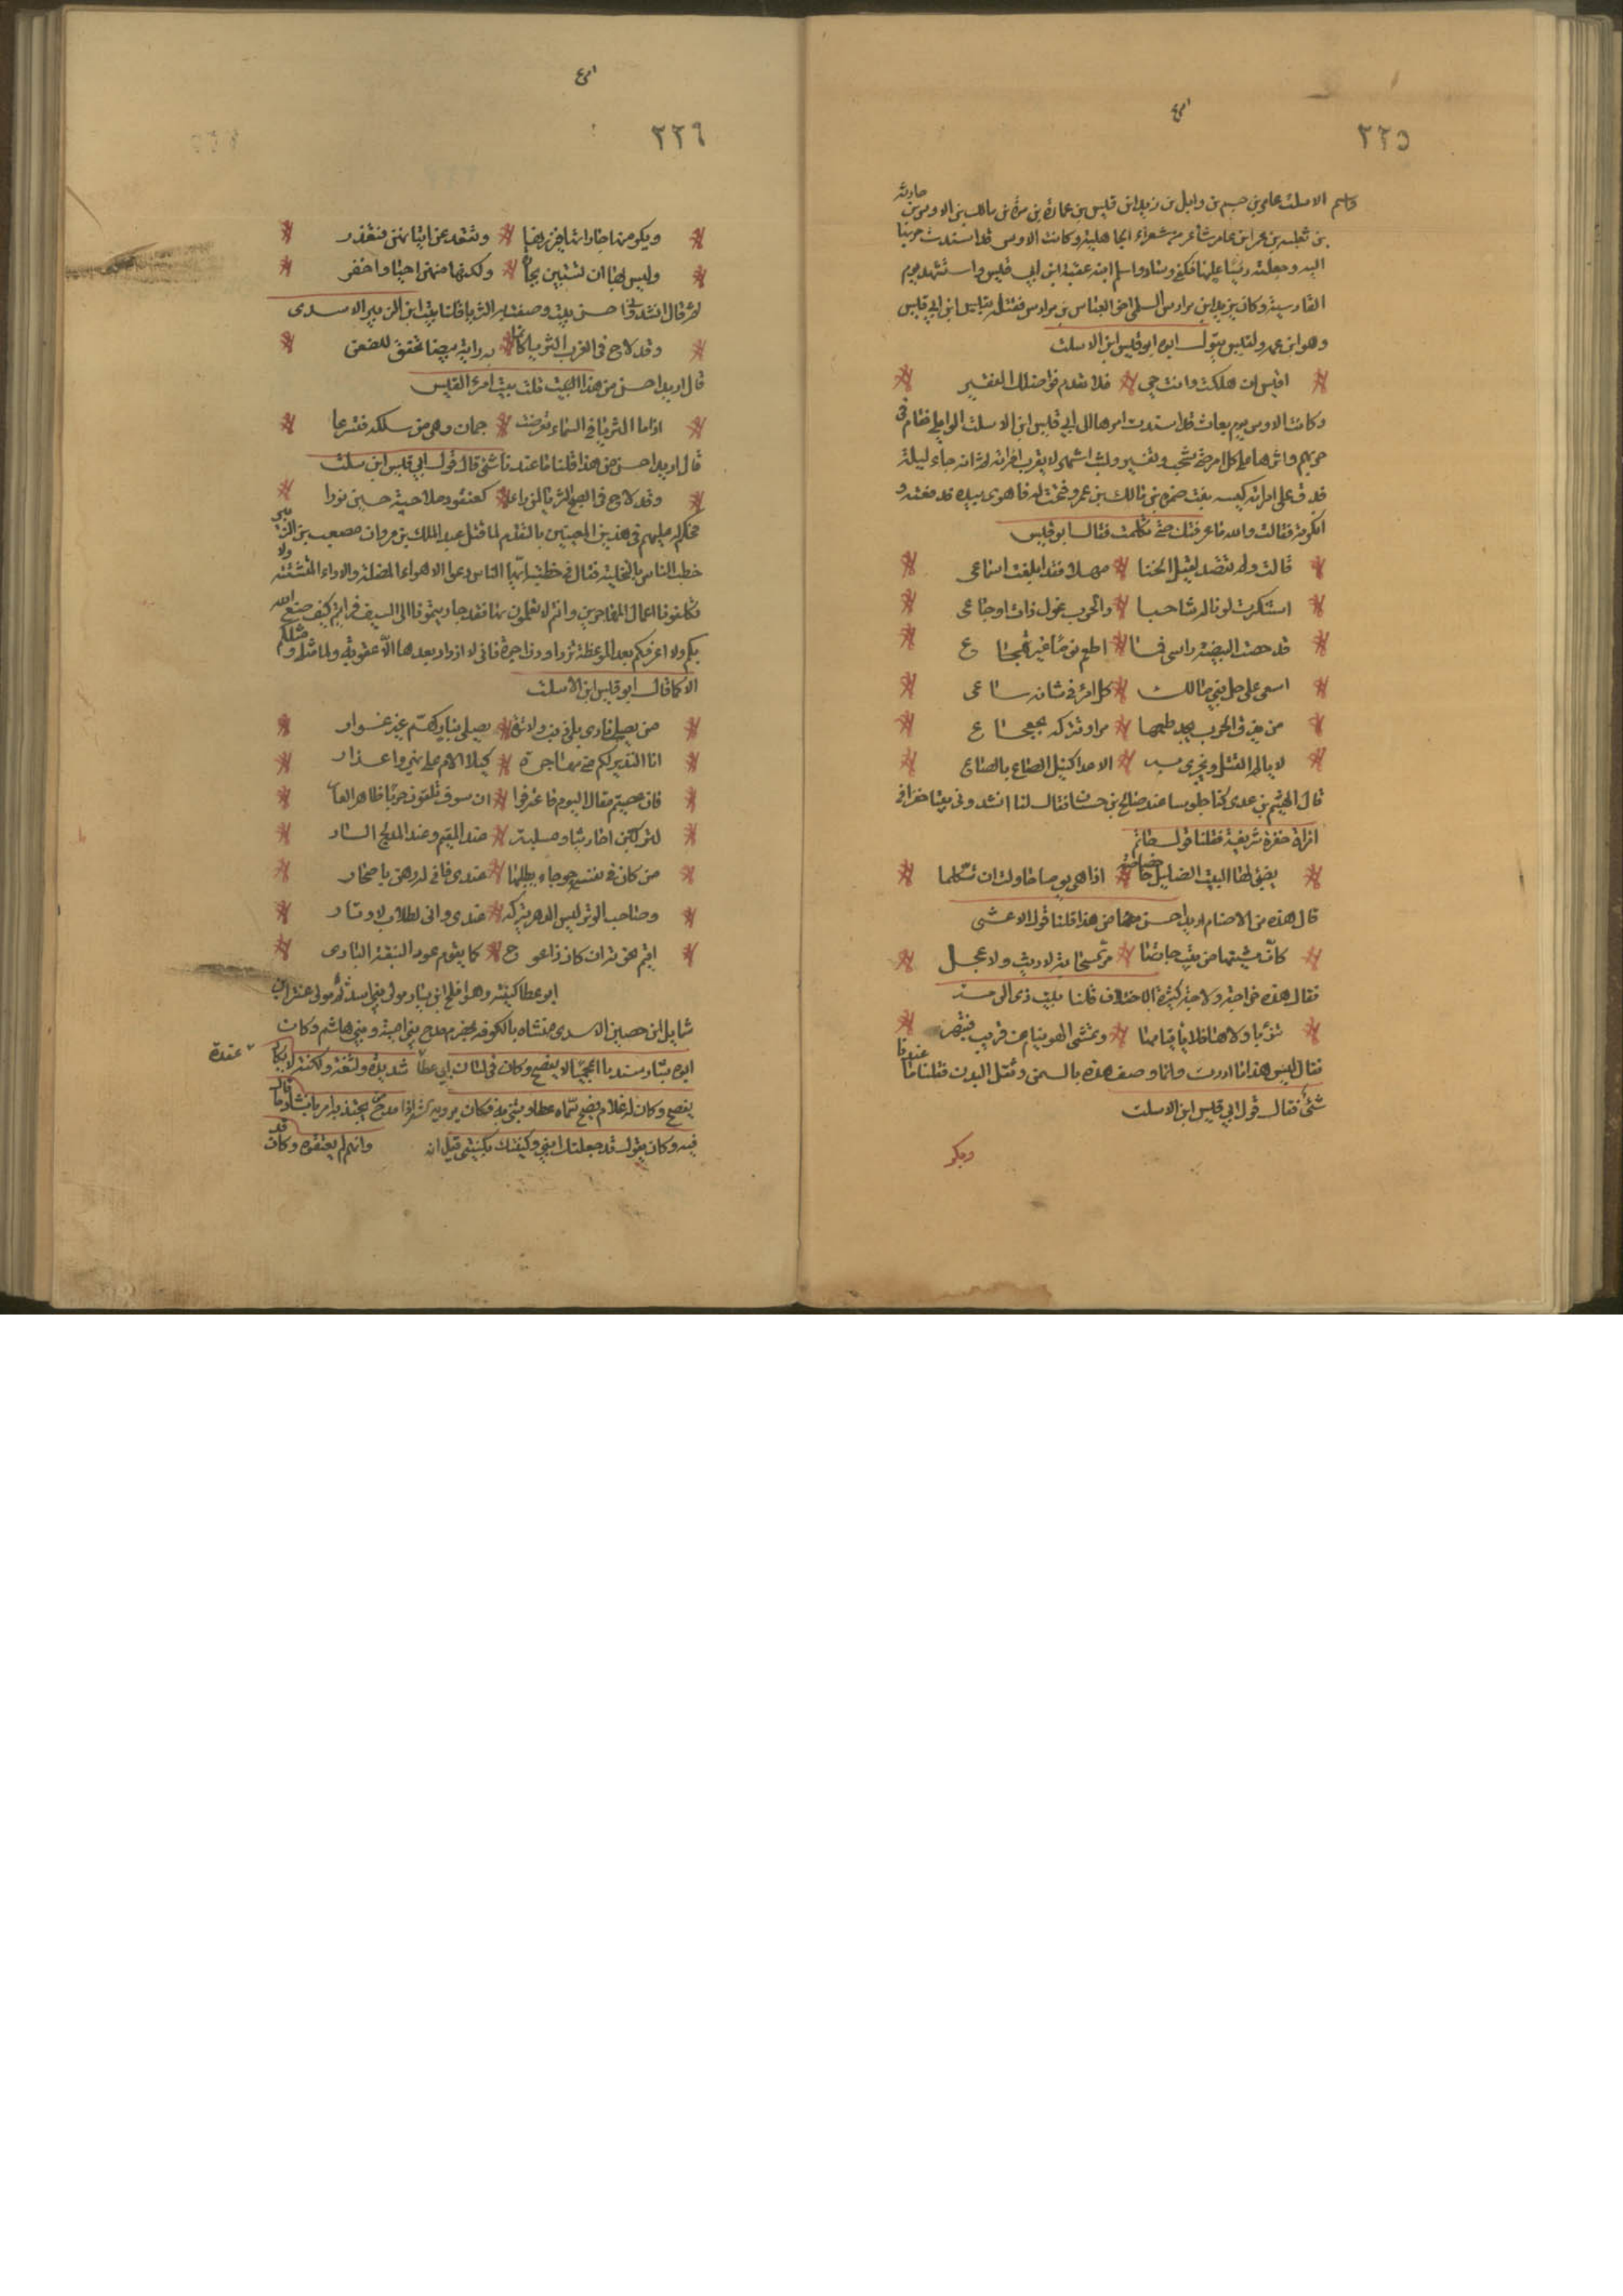 ٢٢٥
واسم الاسلت عامر بن جشم بن وايل بن زيد ابن قيس بن عمارة بن مرة بن مالك بن الاوس بن حارثه
بن ثعلبه بن عمر ابن عامر شاعر من شعراء الجاهلية وكانت الاوس قد اسندت حربها
اليه وجعلته رئيسا عليها فكفى وساد واسلم ابنه عقبة ابن ابي قيس واستشهد يوم
القادسية وكان يزيد ابن مرداس السلمي اخو العباس بن مرداس فقتل قيس ابن ابي قيس
وهو ابن عمه ولقيس يقول ابوه ابو قيس ابن الاسلت
اقيس ان هلكت وانت حي فلا تعدم فواضلك الفقير
وكانت الاوس يوم بعاث قد اسندت امرها الى ابي قيس ابن الاسلت الوايلي فقام في
حربهم واثرها على كل امر حتى شحب وتغير ولبث اشهر لا يقرب امراته ثم انه جاء ليلة
فدق على امراته كبيسه بنت ضمره بن مالك بن عمرو ففتحت له فاهوى بيده فدفعته و
انكرته فقالت والله ما عرفتك حتى تكلمت فقال ابو قيس
قالت ولم تقصد لقيل الخنا مهلا فقد ابلغت اسماعي
استنكرت لونا له شاحبا والحرب غول ذات اوجاع
قد حصت البيضة راسي فما اطعم نوما غير تهجاع
اسعى على جل بني مالك كل امرئ في شانه ساعي
من يذق الحرب يجد طعمها مرا وتتركه بجعجاع
لا يالم القتل ونجزي به الاعدا كيل الصاع بالصاع
قال الهيثم بن عدي كنا جلوسا عند صالح بن حسان فقال لنا انشدوني بيتا خفرا في
امراة خفرة شريفة فقلنا قول حاتم
يضئ لها البيت الضليل خصاصه اذا هي يوما حاولت ان تكلما
قال هذه من الاصنام اريد احسن من هذا قلنا قول الاعشى
كان مشيتها من بيت جارتها مر السحابة لا ريث ولا عجل
فقال هذه خراجة ولاجة كثيرة الاختلاف قلنا بيت ذي الرمة
تنوء باولاها فلايا قيامها وتمشي الهوينا عن قريب فتبهر
فقال ليس هذا ما اردت وانما وصف هذه بالسمن وثقل البدن فقلنا ما عندنا
شئ فقال قول ابي قيس ابن الاسلت
ويكر
٢٢٦
ويكرمنها جاراتها فيزرنها وتعتل عن اتيانهن فتعذر
وليس لها ان تستهين بجارة ولكنها منهن تحيا وتخفر
ثم قال انشدوني احسن بيت وصفت به الثريا قلنا بيت ابن الزبير الاسدي
وقد لاح في الغرب الثريا كانما به راية بيضا تخفق للطعن
قال اريد احسن من هذا البيت قلت بيت امرء القيس
اذا ما الثريا في السماء تعرضت جمان وهى من سلكه فتسرعا
قال اريد احسن من هذا قلنا ما عندنا شئ قال قول ابي قيس ابن سلت
وقد لاح في الصبح الثريا لمن راى كعنقود ملاحية حين نورا
فحكم له عليهم في هذين المعنيين بالتقدم لما قتل عبد الملك بن مروان مصعب بن الزبير
خطب الناس بالنخيلة فقال في خطبته ايها الناس دعوا الاهواء المضلة والاراء المتشتته ولا
تكلفونا اعمال المهاجرين وانتم لا تعملون بها فقد جاريتمونا الى السيف فرايتم كيف صنع الله
بكم ولا اعرفنكم بعد الموعظة تزدادون جراة فاني لا ازداد بعدها الا عقوبة وما مثلي ومثلكم
الا كما قال ابو قيس ابن الاسلت
من يصل ناري بلا ذنب ولا ترة يصلى بنار كريم غير غدار
انا النذير لكم مني مجاهرة كيلا الام على نهي واعذار
فان عصيتم مقال اليوم فاعترفوا ان سوف تلقون خزيا ظاهر العار
لتتركن احاديثا وملعبة عند المقيم وعند المدلج السار
من كان في نفسه حوجاء يطلبها عندي فاني له رهن باصحار
وصاحب الوتر ليس الدهر يدركه عندي واني لطلاب لاوتار
اقيم نخوته ان كان ذا عوج كما يقوم عود النبعة الباري
ابو عطا كنيته وهو افلح ابن يسار مولى بني اسد ثم مولى عنتر ابن
شمايل ابن حصين الاسدي منشاه بالكوفه مخضرم مدح بني امية وبني هاشم وكان
ابوه يسار سنديا اعجميا لا يفصح وكان في لسان ابي عطا شديدة ولثغة ولكنة لا يكاد
عقدة
يفصح وكان له غلام فصيح سماه عطاء وتبنى به فكان يرويه شعره اذا مدح من يجتديه امره بانشاد ما قال
فيه وكان يقول قد جعلتك ابني وكنيتك بكنيتي قيل انه وانهم لم يعتقوه وكان قد